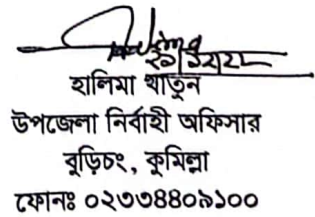 হালিমা খাতুন
উপজেলা নির্বাহী অফিসার
বুড়িচং, কুমিল্লা
ফোনঃ ০২৩৩৪৪০৯১০০